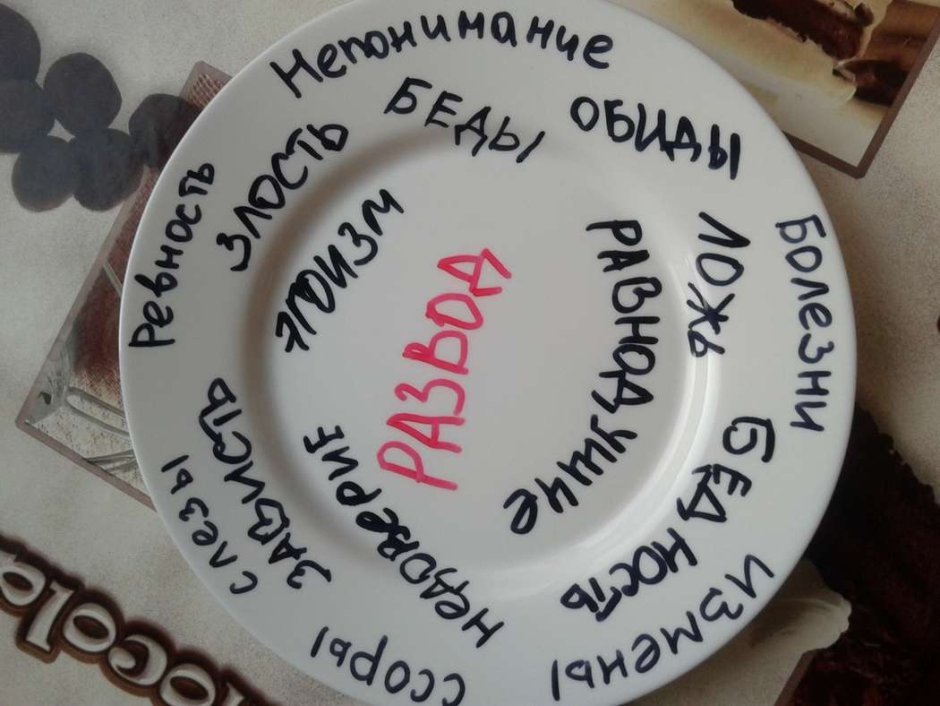 Непонимание
БЕДЫ
ОБИДЫ
Ревность
ЗЛОСТЬ
ЭГОИЗМ
РАЗВОД
РАВНОДУШИЕ
ЛОЖЬ
Болезни
БЕДНОСТЬ
ИЗМЕНЫ
ССОРЫ
НЕДОВЕРИЕ
ЗАВИСТЬ
слезы